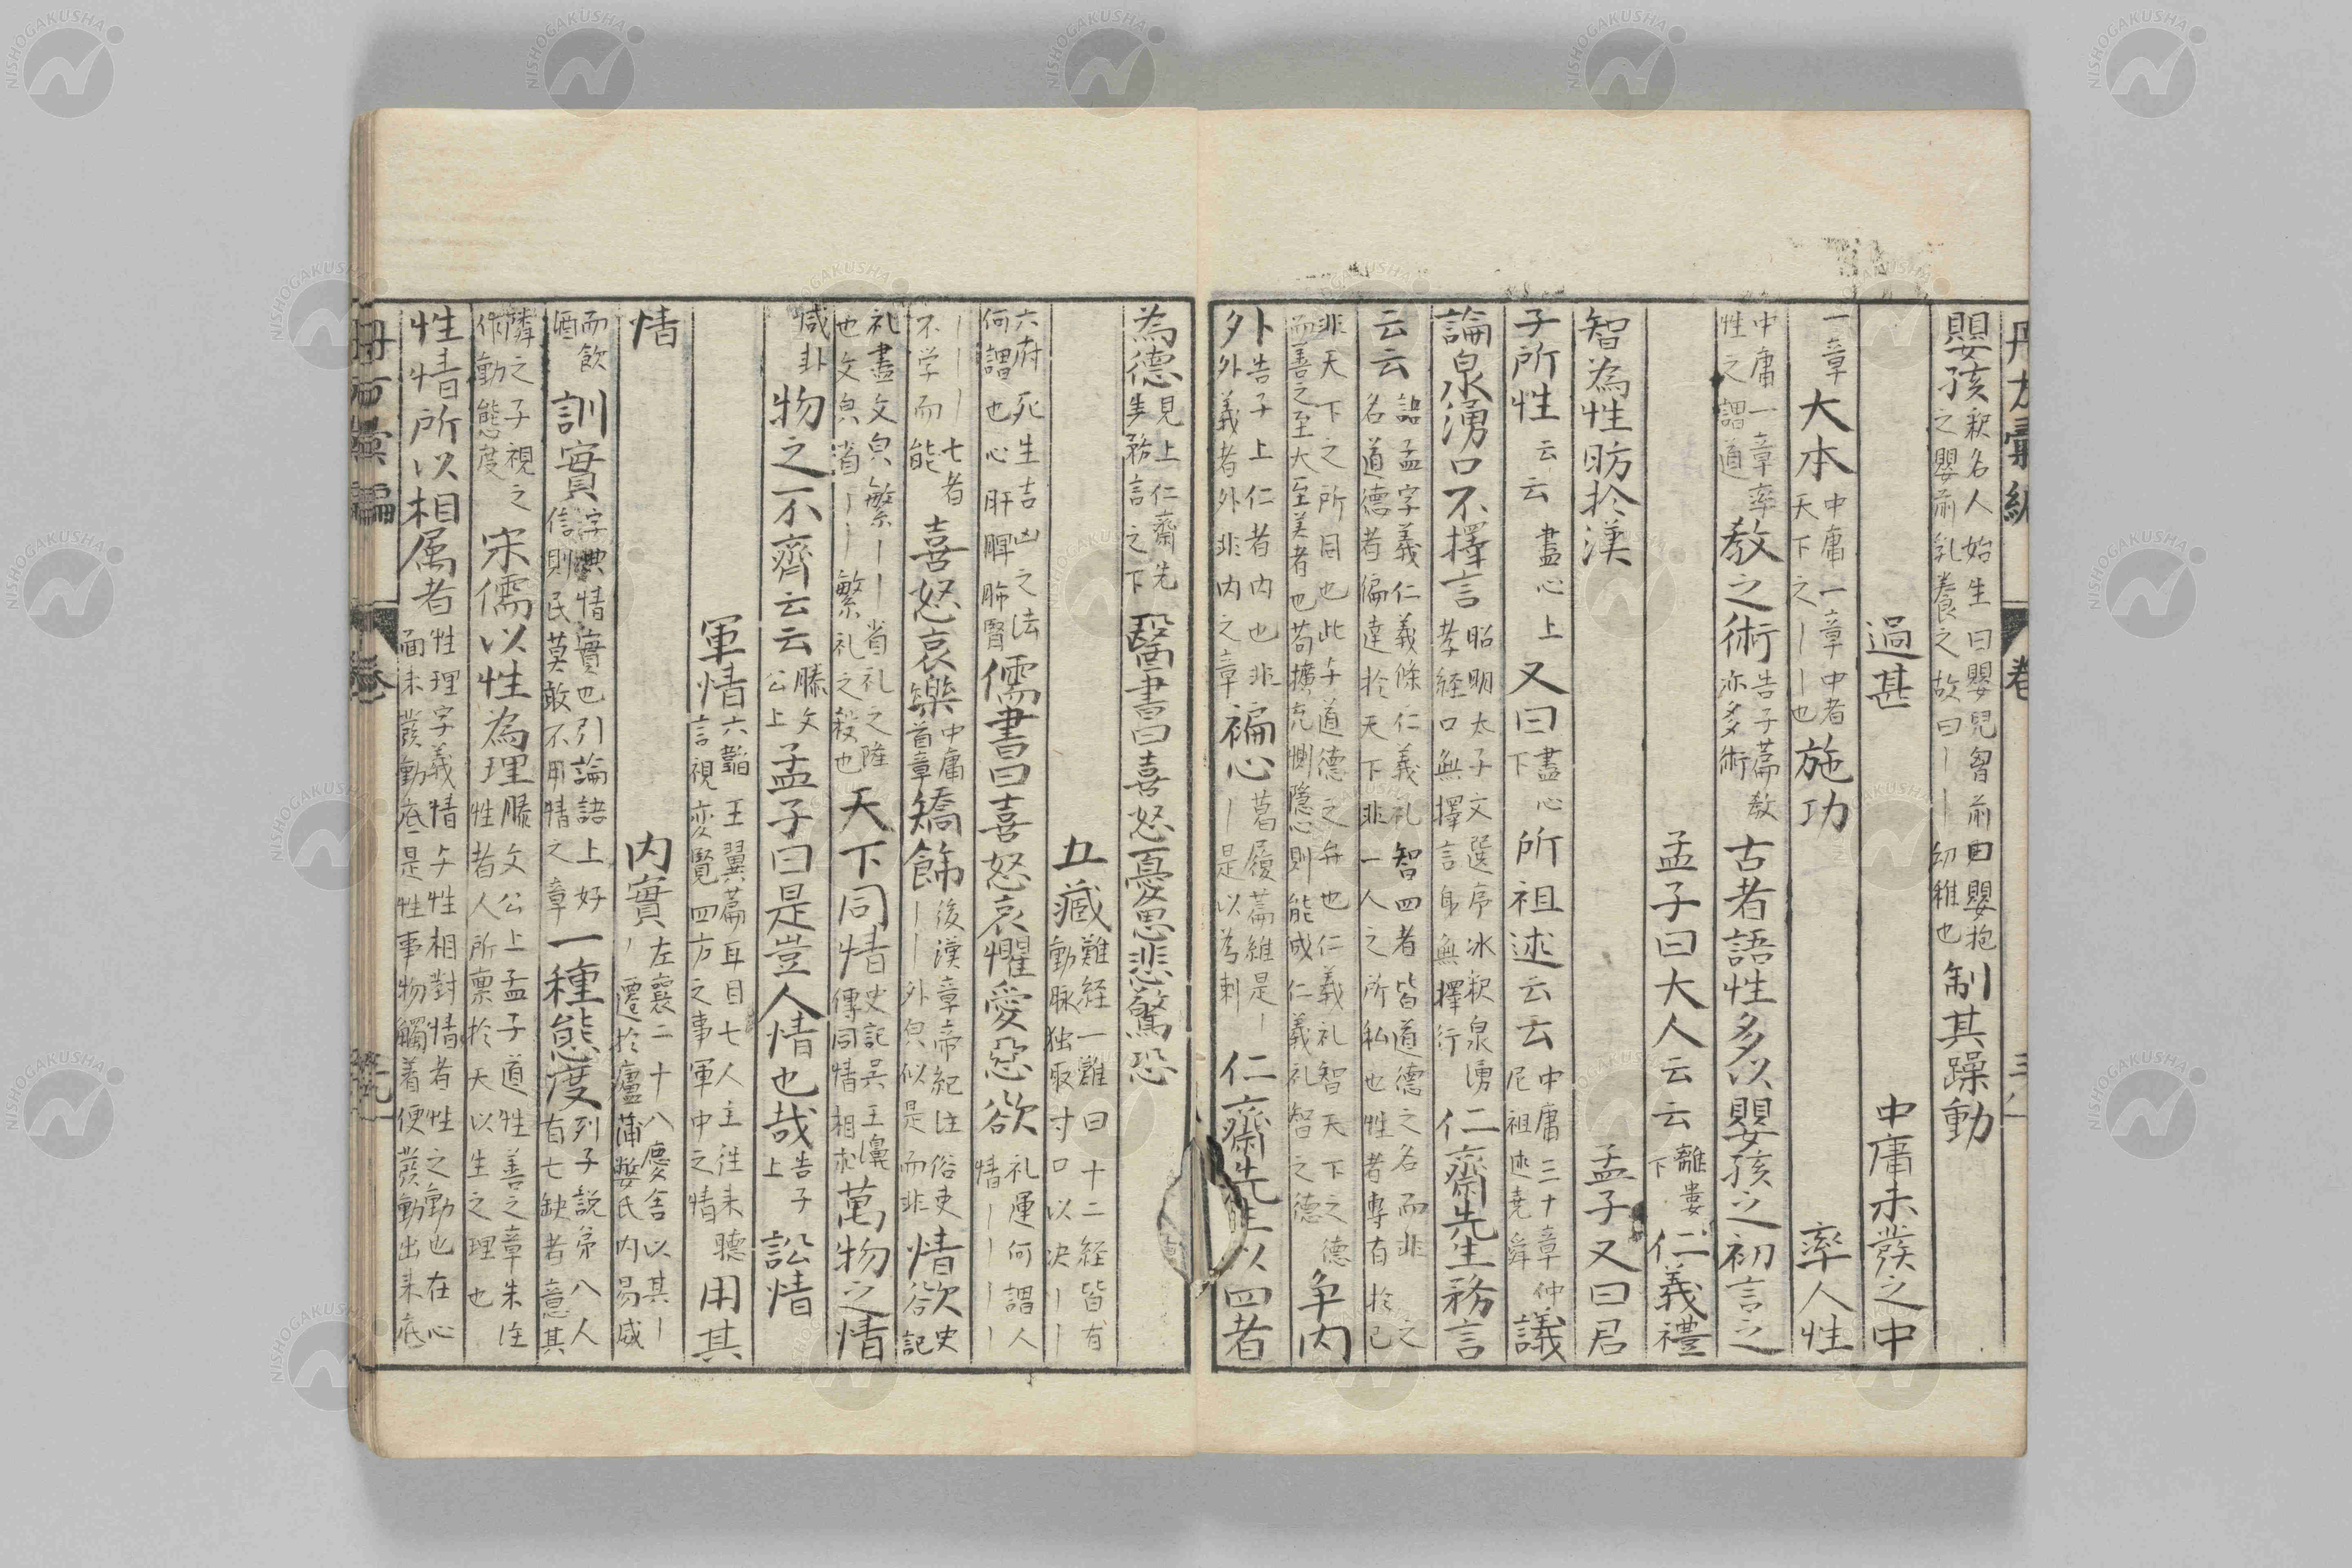 嬰孩釈名人始生曰嬰兒胷前曰嬰抱之嬰前乳養之故曰丨丨幼稚也制其躁動
過甚 中庸未發之中
一章大本中庸一章中者天下之丨丨也施功 率人性
中庸一章率性之謂道教之術告子篇教亦多術古者語性多以嬰孩之初言之
孟子曰大人云云離婁下仁義禮
智為性昉於漢 孟子又曰君
子所性云云盡心上又曰盡心下所祖述云云中庸三十章仲尼祖述堯舜議
論泉湧口不擇言昭明太子文選序冰釈泉湧孝経口無擇言身無擇行仁齋先生務言
云云語孟字義仁義條仁義礼智四者皆道德之名而非名道德者偏達於天下非一人之所私也性者專有於己之
非天下之所同也此与道德之弁也仁義礼智天下之德而善之至大至美者也苟擴充惻隠心則能成仁義礼智之德争内
外告子上仁者内也非外義者外非内之章褊心葛履篇維是丨丨是以為刺仁齋先生以四者
為德見上仁齋先生務言之下醫書曰喜怒憂思悲驚恐
五藏難経一難曰十二経皆有動脉独取寸口以决丨丨
六府死生吉凶之法何謂也心肝脾肺腎儒書曰喜怒哀懼愛惡欲礼運何謂人情丨丨丨丨
丨丨丨七者不学而能喜怒哀樂中庸首章矯餙後漢章帝紀注俗吏丨丨外皃似是而非情欲史記
礼盡文皃繁丨丨省礼之隆也文皃省丨丨繁礼之殺也天下同情史記呉王濞傳同情相求萬物之情
咸卦物之不齊云云滕文公上孟子曰是豈人情也哉告子上訟情
軍情六韜王翼篇耳目七人主往来聴言視変覧四方之事軍中之情用其
情 内實左襄二十八慶舎以其丨丨遷於廬蒲嫳氏内易咸
而飲酒訓實字典情實也引論語上好信則民莫敢不用情之章一種態度列子説符八人有七缺者意其
隣之子視之作動態度宋儒以性為理滕文公上孟子道性善之章朱注性者人所禀於天以生之理也
性情所以相属者性理字義情与性相對情者性之動也在心面未發動底是性事物觸着便發動出来底